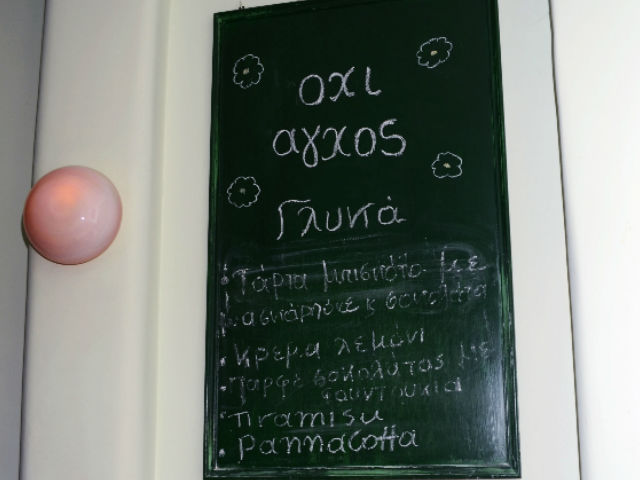 οχι
αγχος
Γλυκά
Τάρτα μπισκότο με
μασκάρπονε κ σοκολάτα
κρεμα λεμόνι
παρφέ σοκολάτας με
φουντούκια
Tiramisu
pannacotta